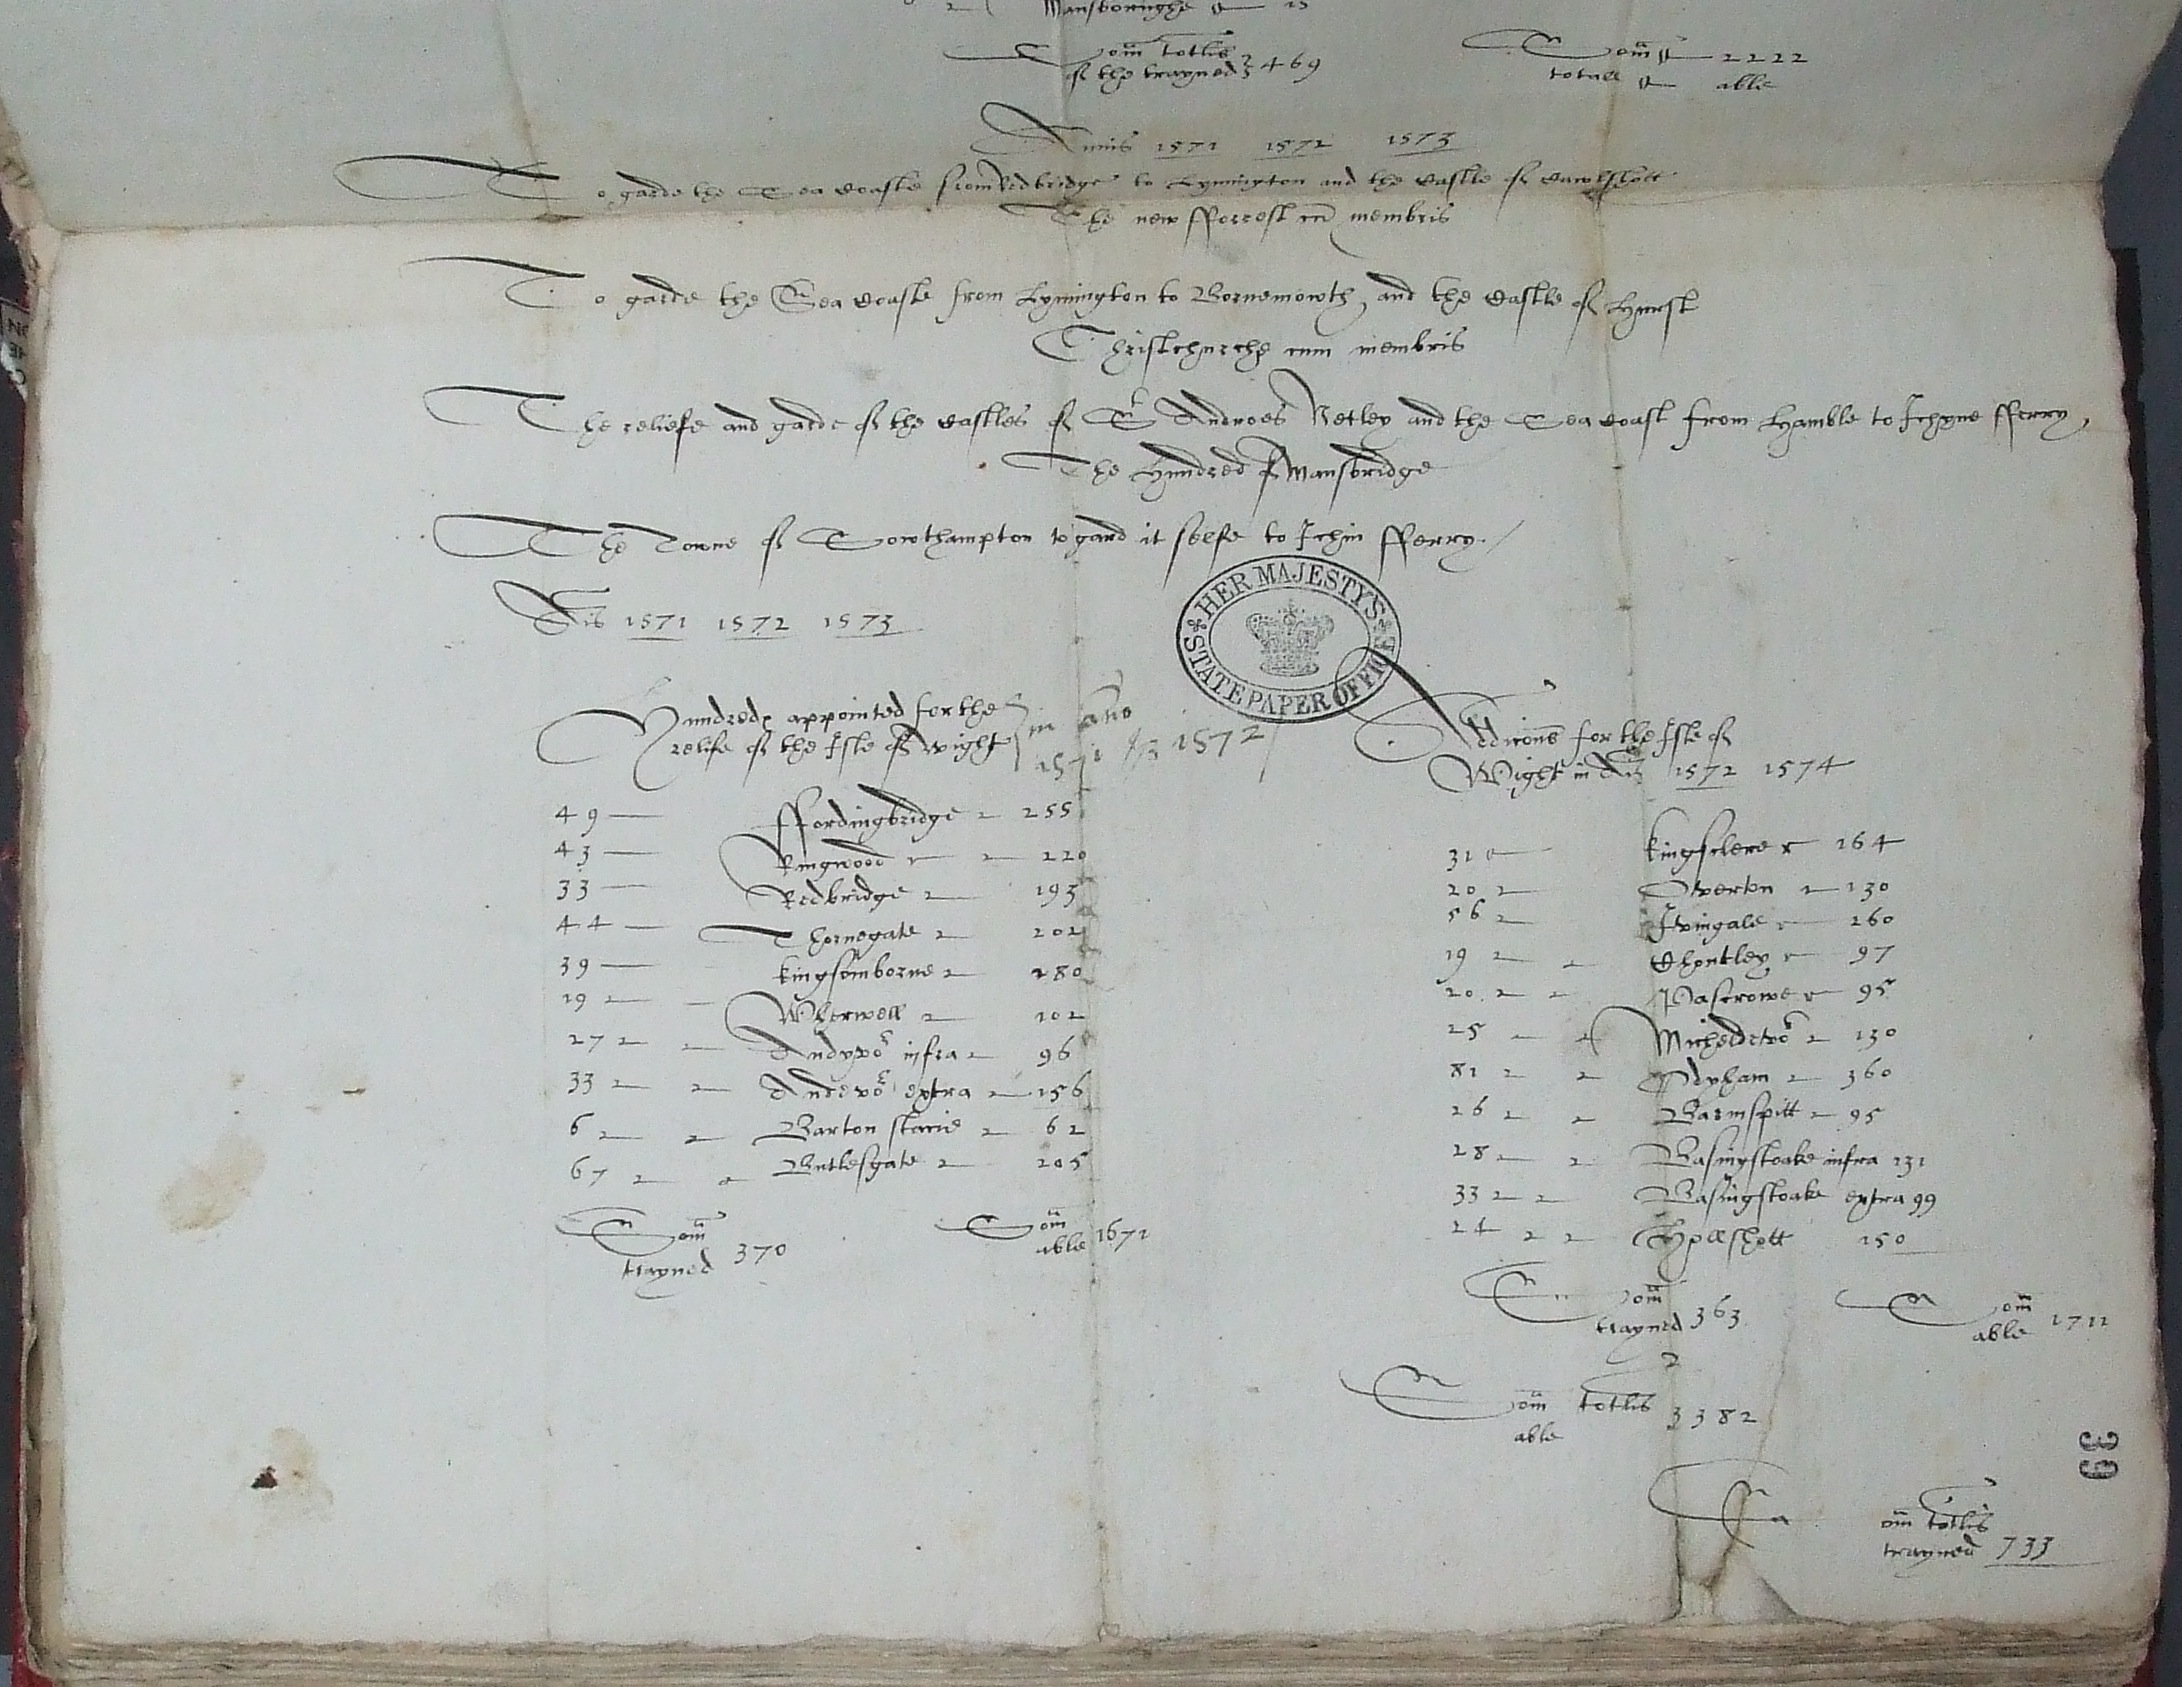 2 Mansborughe 15
Som totlis
of the trayned 469
Som 2222
totall able
Annis 1571 1572 1573
To garde the Sea coaste from Redbridge to Lymington and the castle of Cawlshott
The new fforrest cu membris
To garde the Sea coaste from Lymington to Bornemowth, and the castle of Hurst
Christchurche cum membris
The reliefe and garde of the castles of St Androes Netley and the Sea coast from Hamble to Ichyne fferry,
The Hundred of Mansbridge
The Towne of Sowthampton to gard it selfe to Ichin fferry./
HER MAJESTY'S STATE PAPER OFFICE
Ais 1571 1572 1573
Hundred appointed for the
relife of the Isle of Wight
in ano
1571 1572
49 ffordingbridge 255
43 Ringwood 220
33 Redbridge 193
44 Thornegate 202
39 kingsomborne 180
19 Wherwell 102
27 Andevo infra 96
33 Andevo extra 156
6 Barton stacie 62
67 Butlesgate 205
Som
trayned 370
Som
able 1671
Adicons for the Isle of
Wight in 1572 1574
31 kingsclere 164
20 Overton 130
56 Evingale 260
19 Chontley 97
20 Pastrowe 95
25 Micheldevo 130
81 Odyham 360
26 Barmspitt 95
28 Basingstoake infra 131
33 Basingstoake extra 99
24 Hollshott 150
Som
trayned 363
Som
able 1711
Som totlis
able 3382
39
Som totlis
trayned 733